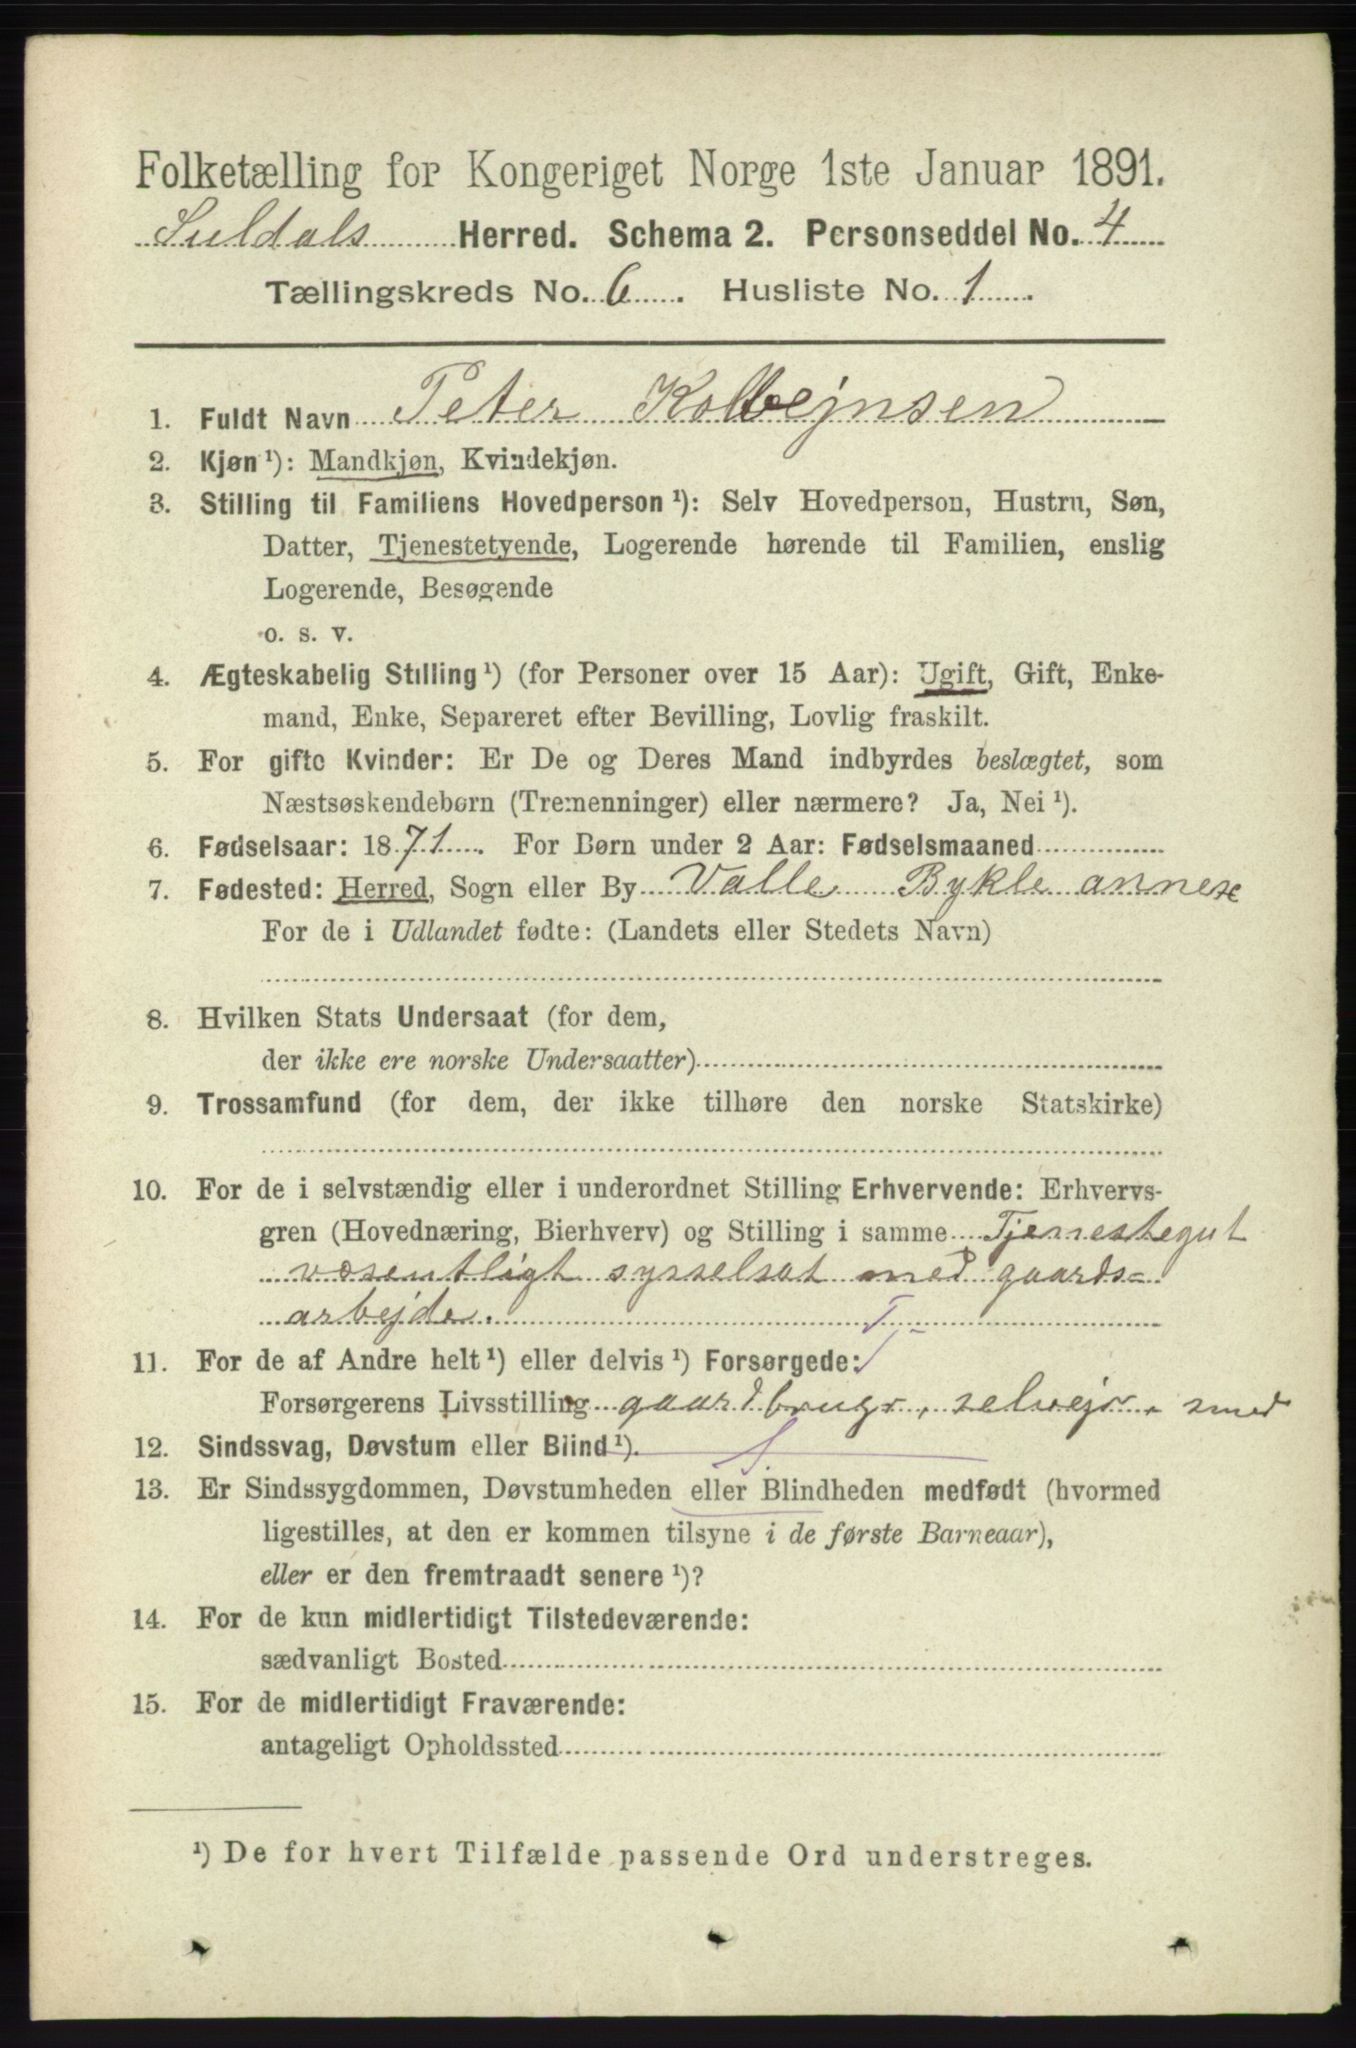 Folketælling for Kongeriget Norge 1ste Januar 1891.
Suldals Herred. Schema 2. Personseddel No. 4
Tællingskreds No. 6. Husliste No. 1.
1. Fuldt Navn Peter Kolbejnsen
2. Kjøn¹): Mandkjøn, Kvindekjøn.
3. Stilling til Familiens Hovedperson¹): Selv Hovedperson, Hustru, Søn,
Datter, Tjenestetyende, Logerende hørende til Familien, enslig
Logerende, Besøgende
o. s. v.
4. Ægteskabelig Stilling¹) (for Personer over 15 Aar): Ugift, Gift, Enke-
mand, Enke, Separeret efter Bevilling, Lovlig fraskilt.
5. For gifte Kvinder: Er De og Deres Mand indbyrdes beslægtet, som
Næstsøskendebørn (Tremenninger) eller nærmere? Ja, Nei¹).
6. Fødselsaar: 1871. For Børn under 2 Aar: Fødselsmaaned
7. Fødested: Herred, Sogn eller By Valle Bykle annex
For de i Udlandet fødte: (Landets eller Stedets Navn)
8. Hvilken Stats Undersaat (for dem,
der ikke ere norske Undersaatter)
9. Trossamfund (for dem, der ikke tilhøre den norske Statskirke)
10. For de i selvstændig eller i underordnet Stilling Erhvervende: Erhvervs-
gren (Hovednæring, Bierhverv) og Stilling i samme Tjenestegut
væsentligt sysselsat med gaards=
arbejde. T
11. For de af Andre helt¹) eller delvis¹) Forsørgede: T
Forsørgerens Livsstilling gaardbrugr, selvejr, smed
12. Sindssvag, Døvstum eller Blind¹).
13. Er Sindssygdommen, Døvstumheden eller Blindheden medfødt (hvormed
ligestilles, at den er kommen tilsyne i de første Barneaar),
eller er den fremtraadt senere¹)?
14. For de kun midlertidigt Tilstedeværende:
sædvanligt Bosted
15. For de midlertidigt Fraværende:
antageligt Opholdssted
¹) De for hvert Tilfælde passende Ord understreges.